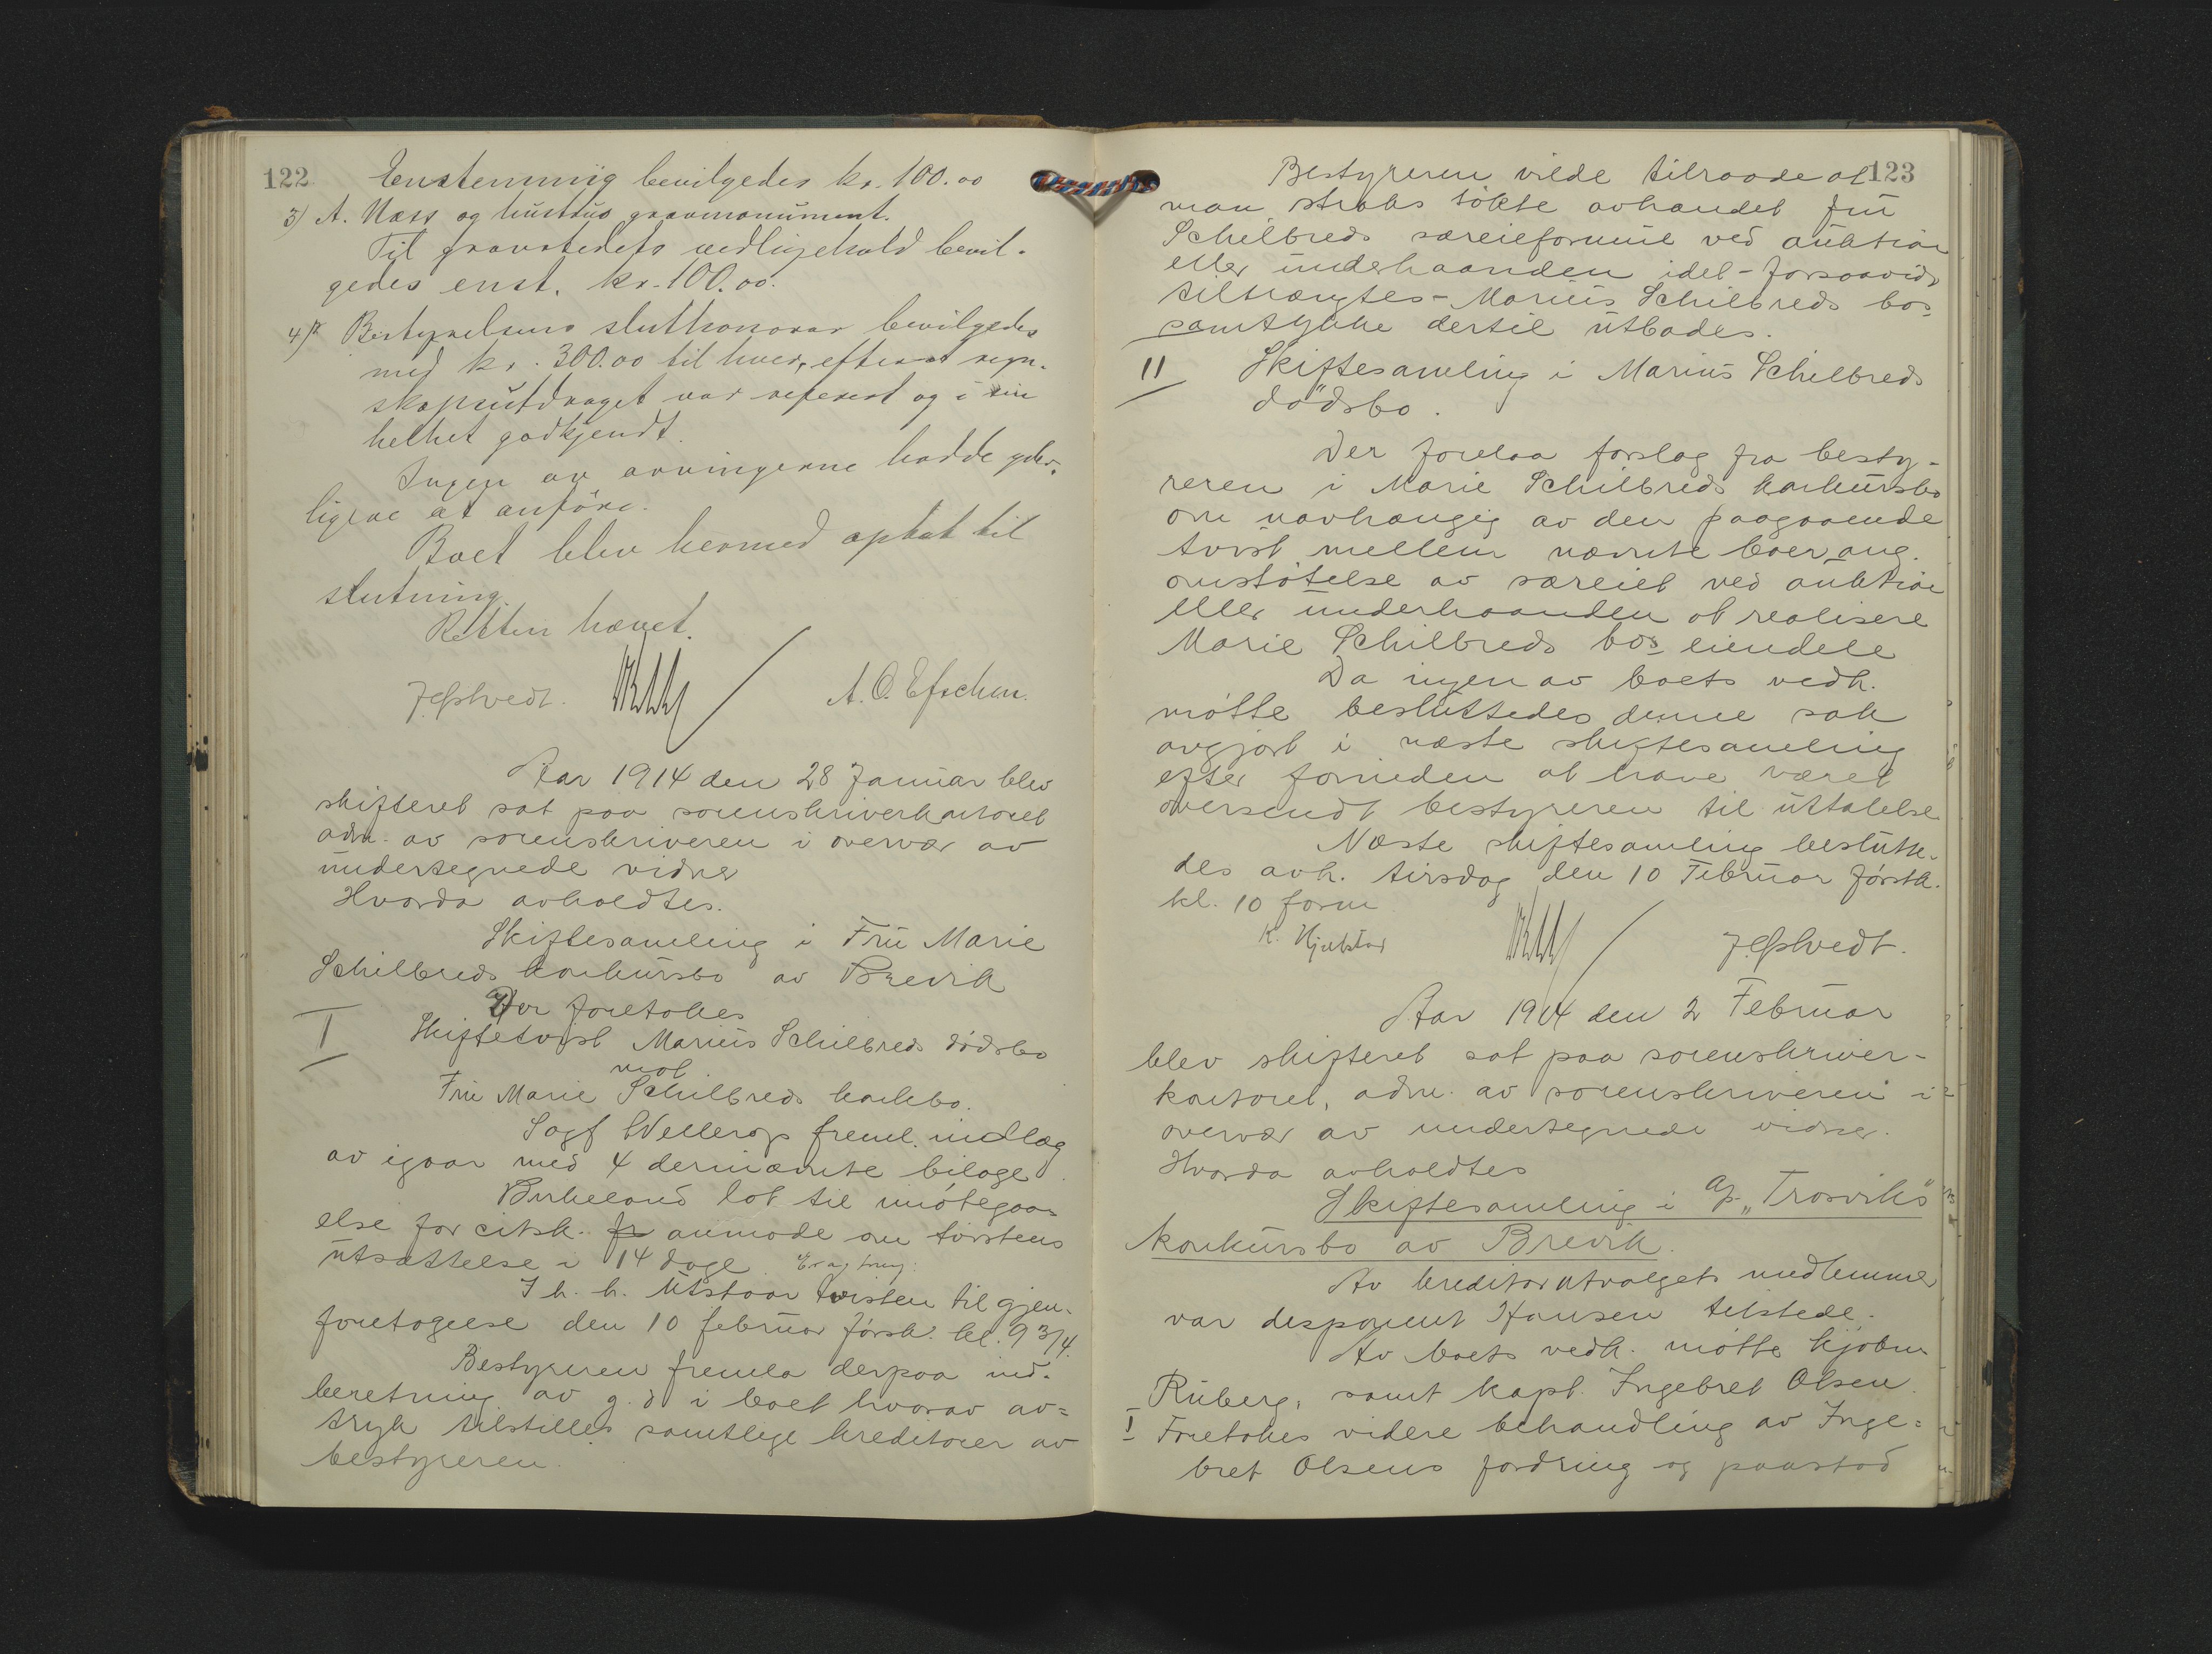 122
Enstemmig bevilgedes kr. 100.00
3) A. Næss og hustrus gravmonument.
Til gravstedets vedligehold bevil-
gedes enst. kr. 100.00.
4) Bestyrelsens sluthonorar bevilgedes
med kr. 300.00 til hver, efterat regn-
skapsutdraget var referert og i sin
helhet godkjendt.
Ingen av arvingerne hadde yder-
ligere at anføre.
Boet blev hermed optat til
slutning.
Retten hævet.
A. O. Efschen.
Aar 1914 den 28 Januar blev
skifteret sat paa sorenskriverkontoret
adm. av sorenskriveren i overvær av
undertegnede vidner
Hvorda avholdtes.
Skiftesamling i Fru Marie
Schilbreds konkursbo av Brevik
Der foretokes
I Skiftetvist Marius Schilbreds dödsbo
mot
Fru Marie Schilbreds konkbo.
Sagf Wellerop freml. indlæg
av igaar med 4 deri nævnte bilage
Birkeland lot til imötegaa-
else for citsk. fr anmode om tvistens
utsættelse i 14 dage
I h. h. Utstaar tvisten til gjen-
foretagelse den 10 februar førstk. kl. 9 3/4.
Bestyreren fremla derpaa ind-
beretning av g. d i boet hvorav av=
tryk tilstilles samtlige kreditorer av
bestyreren.
123
Bestyreren vilde tilraade at
man straks sökte avhændet fru
Schilbreds særeieformue ved auktion
eller underhaanden idet - forsaavidt
tiltrængtes - Marius Schilbreds bos
samtykke dertil utbades.
II Skiftesamling i Marius Schilbreds
dödsbo.
Der forelaa forslag fra besty-
reren i Marie Schilbreds konkursbo
om uavhængig av den paagaaende
tvist mellem nævnte boer ang.
omstötelse av særeiet ved auktion
eller underhaanden at realisere
Marie Schilbreds bos eiendele
Da ingen av boets vedk.
mötte besluttedes denne sak
avgjort i næste skiftesamling
efter forinden at have været
oversendt bestyreren til uttalelse
Næste skiftesamling beslutte-
des avh. tirsdag den 10 Februar førstk.
kl. 10 form
Aar 1914 den 2 Februar
blev skifteret sat paa sorenskriver-
kontoret, adm. av sorenskriveren i
overvær av undertegnede vidner.
Hvorda avholdtes
Skiftesamling i A/S „Trosviks"
konkursbo av Brevik.
Av kreditorutvalgets medlemmer
var disponent Hansen tilstede.
Av boets vedk. mötte kjøbm
Ruberg, samt kapt. Ingebret Olsen.
I Foretokes videre behandling av Inge=
bret Olsens fordring og paastod